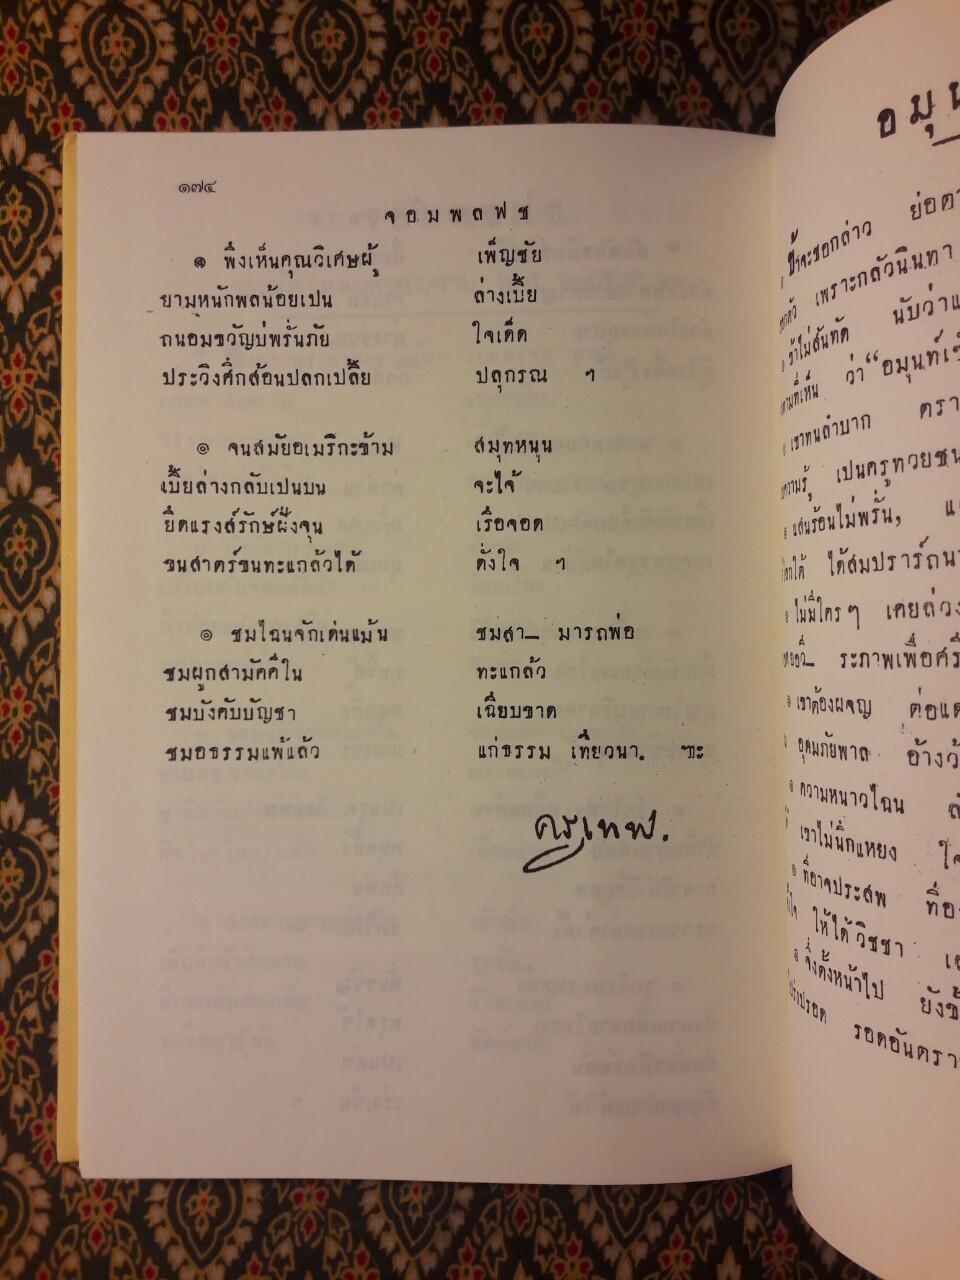 ๑๗๔
จอมพลฟช
๑ พึงเห็นคุณวิเศษผู้ เพ็ญชัย
ยามหนักพลน้อยเปน ล่างเบี้ย
ถนอมขวัญบ่พรั่นภัย ใจเด็ด
ประวิงศึกส้อนปลกเปลี้ย ปลุกรณ ฯ
๑ จนสมัยอเมริกะข้าม สมุทหนุน
เบี้ยล่างกลับเปนบน จะไจ้
ยึดแรงส์รักษ์ฝั่งจุน เรือจอด
ขนสาตร์ขนทะแกล้วได้ ดั่งใจ ฯ
๑ ชมไฉนจักเด่นแม้น ชมสา— มารถพ่อ
ชมผูกสามัคคีใน ทะแกล้ว
ชมบังคับบัญชา เฉียบขาด
ชมอธรรมแพ้แล้ว แก่ธรรม เทียวนา. ฯะ
ครูเทพ.
อมุน
ป้าจะขอกล่าว ย่อคว
เพราะกลัวนินทา
ข้าไม่สันทัด นับว่าแ
ตามที่เห็น ว่า “อมุนท์เซ
เขาทนลำบาก ตรา
ความรู้ เปนครูทวยชน
แสนร้อนไม่พรั่น, แ
ได้สมปรารถน
ไม่มีใครๆ เคยล่วง
ระภาพเพื่อศรี
เขาต้องผจญ ต่อแด
อุดมภัยพาล อ้างว้
ความหนาวไฉน
เขาไม่นึกแหยง ใจ
ที่อาจประสพ ที่อ
ให้ได้วิชชา เ
จึ่งตั้งหน้าไป ยังข
รอดอันตรา